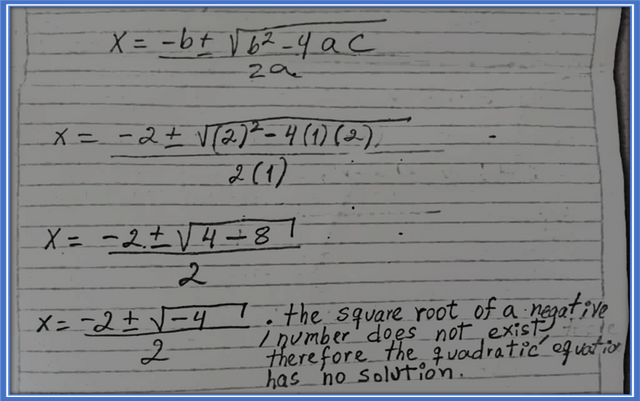 x = -b ± √b² - 4 a c
2a
x = -2 ± √(2)² - 4 (1) (2)
2 (1)
x = -2 ± √4 - 8
2
x = -2 ± √-4 . the square root of a negative
2 / number does not exist,
therefore the quadratic equation
has no solution.